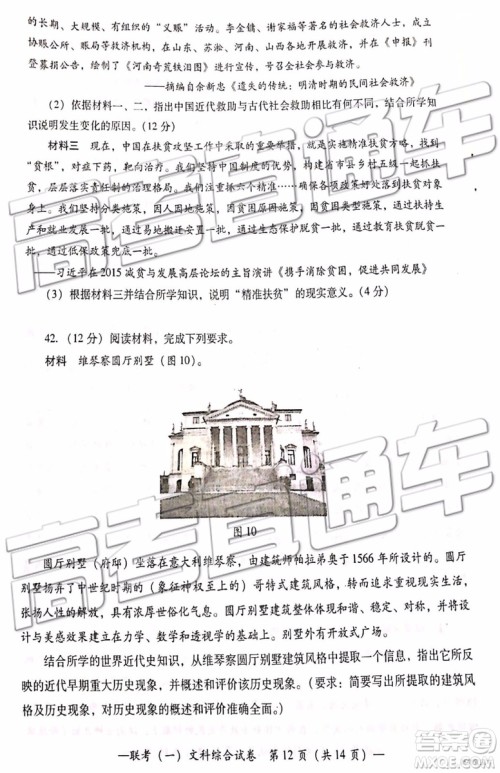 的长期、大规模、有组织的“义赈”活动。李金镛、谢家福等著名的社会救济人士,成立
协赈公所、赈局等机构,在山东、苏淞、河南、山西各地开展救济,并在《申报》刊
登募捐公告,刻印《河南奇荒铁泪图》进行宣传,鼓励全社会参与救济。
——摘编自余新忠《遗失的传统:明清时期的民间社会救济》
(2)依据材料一、二,指出中国近代救助与古代社会救助相比有何不同,结合所学知
识说明发生变化的原因。(12分)
材料三 现在,中国在扶贫攻坚工作中采取的重要举措,就是实施精准扶贫方略,找到
“贫根”,对症下药,靶向治疗。我们坚持中国制度的优势,构建省市县乡村五级一起抓扶
贫,层层落实责任制的治理格局。我们注重抓六个精准,确保各项政策好处落到扶贫对象
身上。我们坚持分类施策,因人因地施策,因贫困原因施策,因贫困类型施策,通过扶持
生产和就业发展一批,通过易地搬迁安置一批,通过生态保护脱贫一批,通过教育扶贫脱贫
一批,通过低保政策兜底一批。
——习近平在2015减贫与发展高层论坛的主旨演讲《携手消除贫困,促进共同发展》
(3)根据材料三并结合所学知识,说明“精准扶贫”的现实意义。(4分)
42.(12分)阅读材料,完成下列要求。
材料 维琴察圆厅别墅(图10)。
图10
圆厅别墅(府邸)坐落在意大利维琴察,由建筑师帕拉弟奥于1566年所设计的。圆厅
别墅扬弃了中世纪时期的(象征神权至上的)哥特式建筑风格,广泛采用古罗马建筑风格,
张扬人性的解放,具有浓厚世俗化气息。圆厅别墅的建筑主体和谐、稳定、对称,其
设计与美感效果得力于力学、数学和透视学的基础。别墅外有开放式广场。
结合所学的世界近代史知识,从维琴察圆厅别墅建筑风格中提取一个信息,指出它所反
映的近代早期重大历史现象,并概述和评价该历史现象。(要求:简要写出所提取的建筑风
格及历史现象,对历史现象的概述和评价准确全面。)
—联考(一)文科综合试卷 第12页(共14页)—
高考直通车
高考直通车